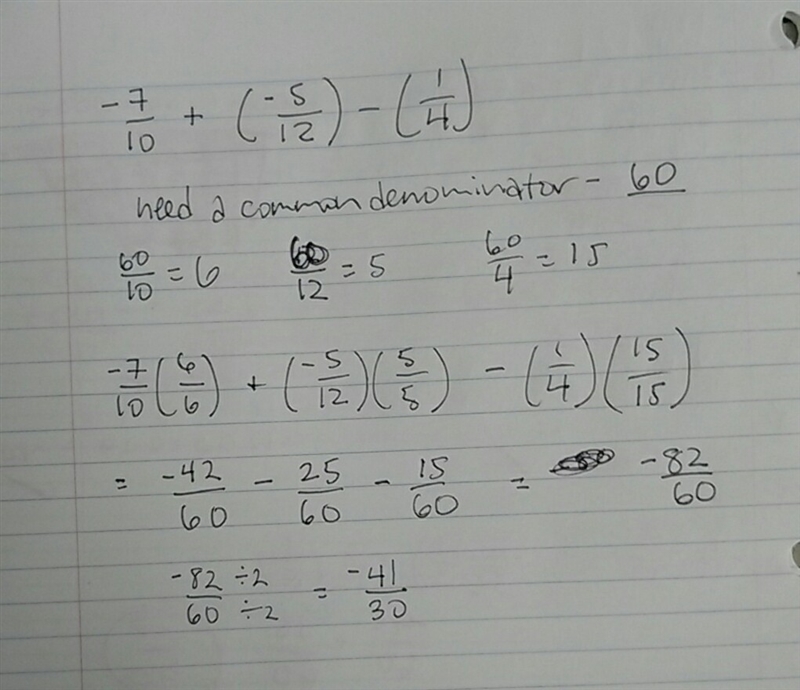 -7/10 + (-5/12) - (1/4)
need a common denominator - 60
60/10 = 6 60/12 = 5 60/4 = 15
-7/10 (6/6) + (-5/12)(5/5) - (1/4)(15/15)
= -42/60 - 25/60 - 15/60 = -82/60
-82÷2/60÷2 = -41/30